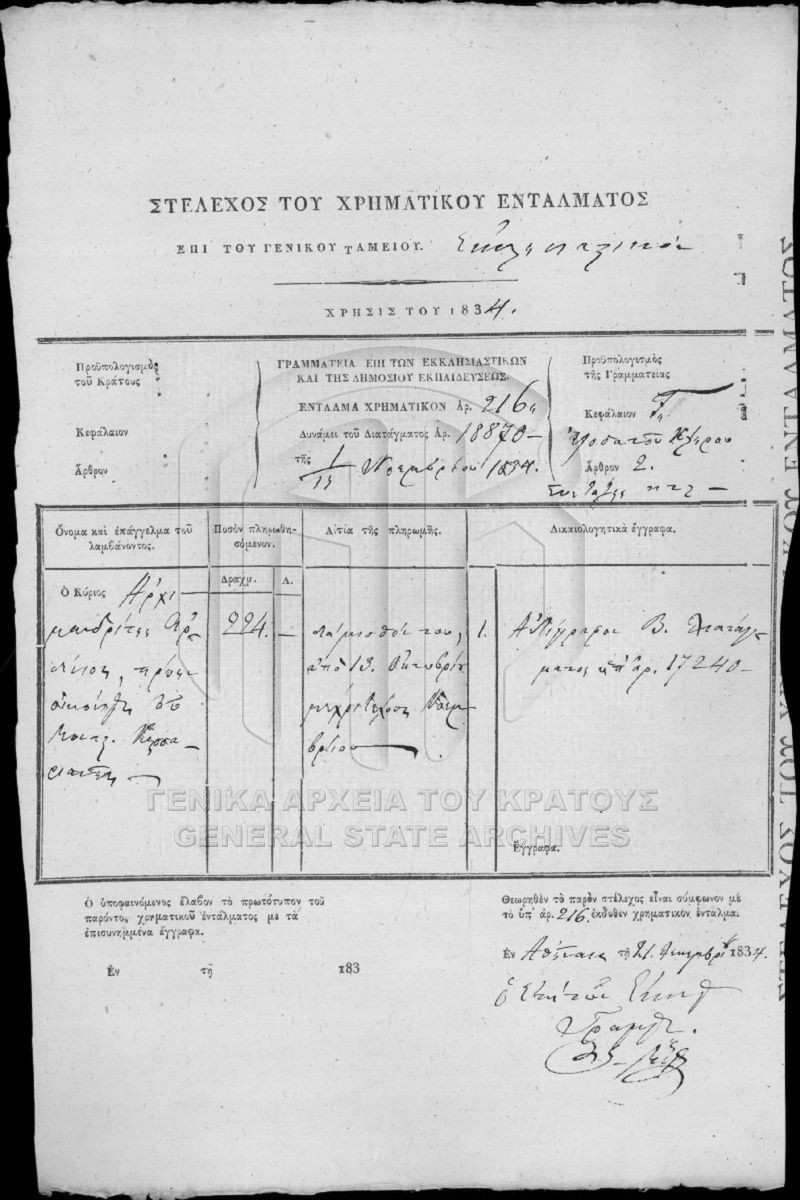 ΣΤΕΛΕΧΟΣ ΤΟΥ ΧΡΗΜΑΤΙΚΟΥ ΕΝΤΑΛΜΑΤΟΣ
ΕΠΙ ΤΟΥ ΓΕΝΙΚΟΥ ΤΑΜΕΙΟΥ.
ΧΡΗΣΙΣ ΤΟΥ 1834.
Προϋπολογισμὸς
τοῦ Κράτους
Κεφάλαιον
Ἄρθρον
ΓΡΑΜΜΑΤΕΙΑ ΕΠΙ ΤΩΝ ΕΚΚΛΗΣΙΑΣΤΙΚΩΝ
ΚΑΙ ΤΗΣ ΔΗΜΟΣΙΟΥ ΕΚΠΑΙΔΕΥΣΕΩΣ.
ΕΝΤΑΛΜΑ ΧΡΗΜΑΤΙΚΟΝ Ἀρ. 216
Δυνάμει τοῦ Διατάγματος Ἀρ. 18870 —
τῆς 1/13 Νοεμβρίου 1834.
Προϋπολογισμὸς
τῆς Γραμματείας
Κεφάλαιον Γ
Ἔξοδα τοῦ Κλήρου
Ἄρθρον 2.
Ὄνομα καὶ ἐπάγγελμα τοῦ
λαμβάνοντος.
Ποσὸν πληρωθη-
σόμενον.
Αἰτία τῆς πληρωμῆς.
Δικαιολογητικὰ ἔγγραφα.
Δραχμ. Λ.
Ὁ Κύριος Ἀρχι
μανδρίτης
224. —
ὁ μισθός του,
ἀπὸ 13. Ὀκτωβρίου
μέχρι τέλους Νοεμ
βρίου
1. Ἀντίγραφον Β. Διατάγ-
ματος ὑπ' ἀρ. 17240 —
Ἔγγραφα.
ΓΕΝΙΚΑ ΑΡΧΕΙΑ ΤΟΥ ΚΡΑΤΟΥΣ
GENERAL STATE ARCHIVES
Ὁ ὑποφαινόμενος ἔλαβον τὸ πρωτότυπον τοῦ
παρόντος χρηματικοῦ ἐντάλματος μὲ τὰ
ἐπισυνημμένα ἔγγραφα.
Ἐν τῇ 183
Θεωρηθὲν τὸ παρὸν στέλεχος εἶναι σύμφωνον μὲ
τὸ ὑπ' ἀρ. 216. ἐκδοθὲν χρηματικὸν ἔνταλμα.
Ἐν Ἀθήναις τῇ 21. Δεκεμβρίου 1834.
ΣΤΕΛΕΧΟΣ ΤΟΥ ΧΡΗΜΑΤΙΚΟΥ ΕΝΤΑΛΜΑΤΟΣ